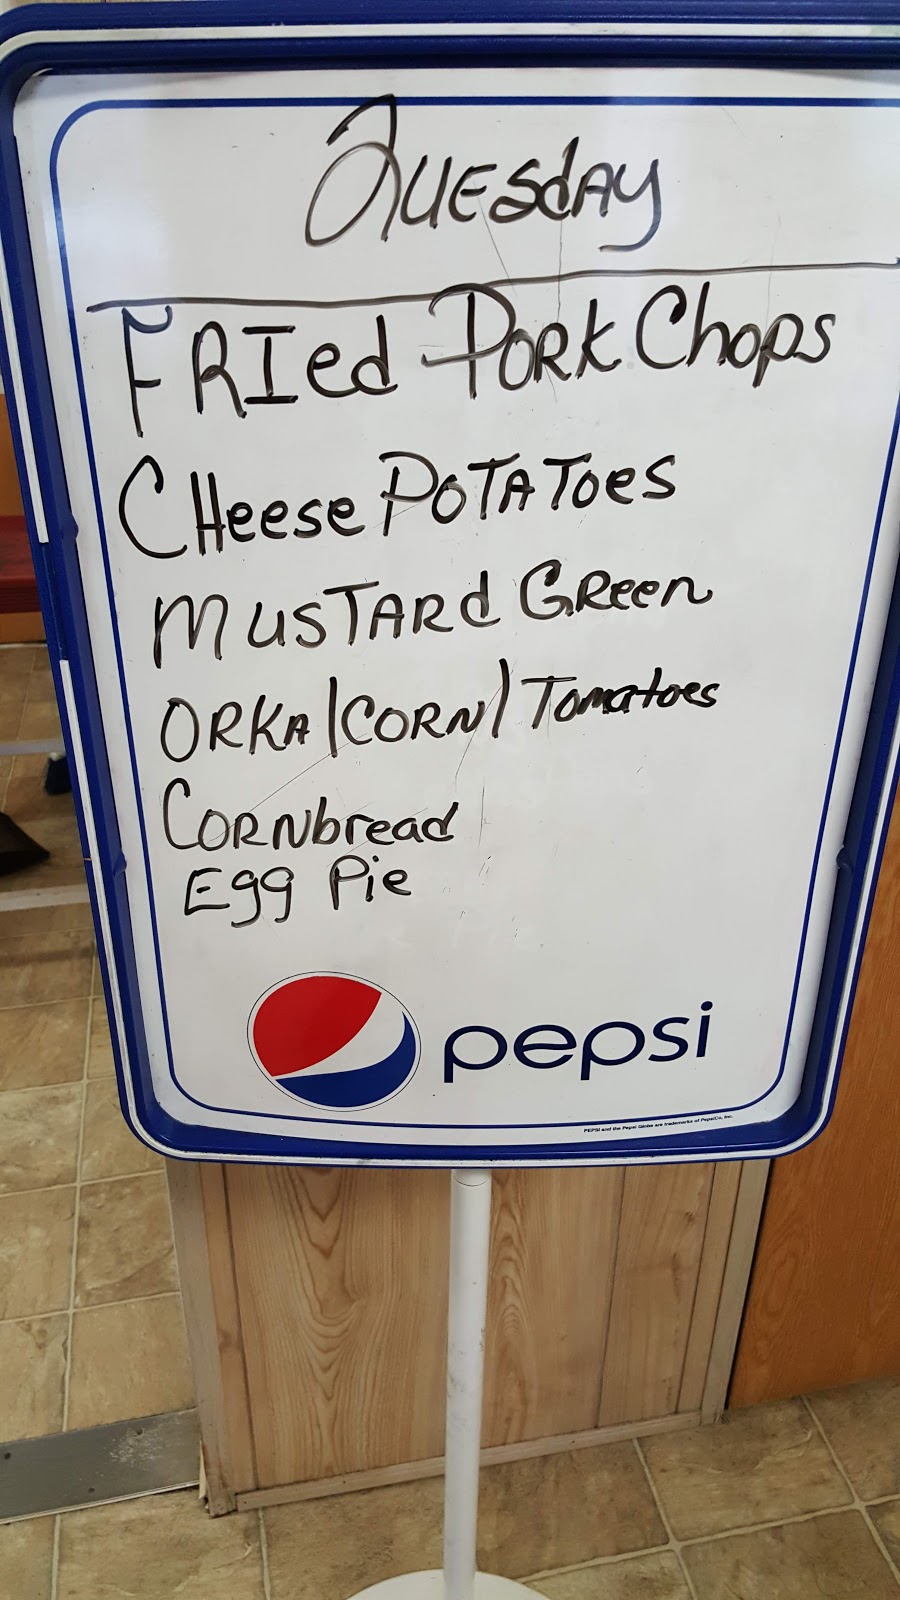 Tuesday
FRIed PORK Chops
CHeese POTATOes
MUSTARd GReen
ORKA/CORN/Tomatoes
CORNbread
Egg Pie
pepsi
PEPSI and the Pepsi Globe are trademarks of PepsiCo, Inc.